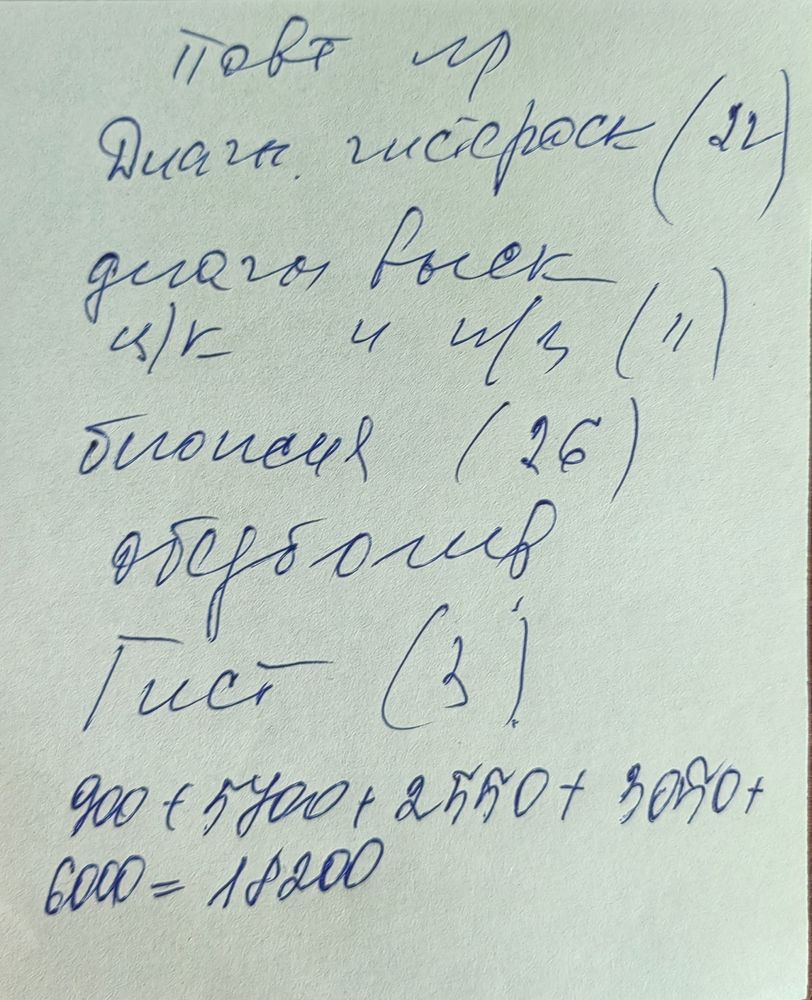 Повт пр
Диагн. гистероск (22)
диагн выск
ц/к и п/з (11)
биопсия (26)
обезболив
Гист (3)
900 + 5700 + 2550 + 3050 +
6000 = 18200